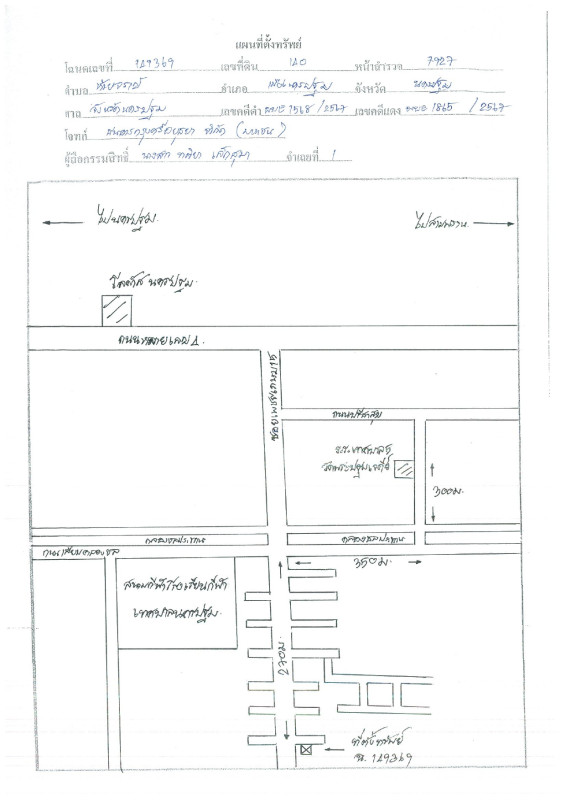 แผนที่ตั้งทรัพย์
โฉนดเลขที่ 149369 เลขที่ดิน 140 หน้าสำรวจ 7927
ตำบล ห้วยจรเข้ อำเภอ เมืองนครปฐม จังหวัด นครปฐม
ศาล จังหวัดนครปฐม เลขคดีดำ ผบE 1568/2567 เลขคดีแดง ผบE 1865/2567
โจทก์ ธนาคารกรุงศรีอยุธยา จำกัด (มหาชน)
ผู้ถือกรรมสิทธิ์ นางสาว จำเลยที่ 1
ไปนครปฐม
ไปสามพราน
โลตัส นครปฐม
ถนนหมายเลข 4
ซอยเพชรเกษม 15
ร.ร.เทศบาล 5
วัดพระปฐมเจดีย์
300 ม.
คลองชลประทาน
คลองชลประทาน
ถนนเลียบคลองชล
350 ม.
สนามกีฬาโรงเรียนกีฬา
เทศบาลนครปฐม
270 ม.
ที่ตั้งทรัพย์
น. 149369